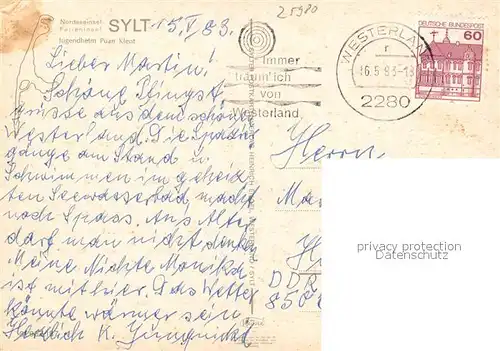 25980
Nordseeinsel
Ferieninsel
SYLT
Jugendheim Puan Klent
15.V.83.
Lieber Martin!
Schöne Pfingst
grüsse aus dem schönen
Westerland. Die Spazier
gänge am Strand u.
Schwimmen im geheiz
ten Seewasserbad macht
noch Spass. Ans Alter
darf man nicht denken
Meine Nichte Monika
ist mit hier. Das Wetter
könnte wärmer sein
Herzlich K. Jungnickel
Immer
träum' ich
von
Westerland
WESTERLAND
r
16.5.83-18
2280
DEUTSCHE BUNDESPOST
60
Herrn
Ma
H
DDR
privacy protection
Oldthing